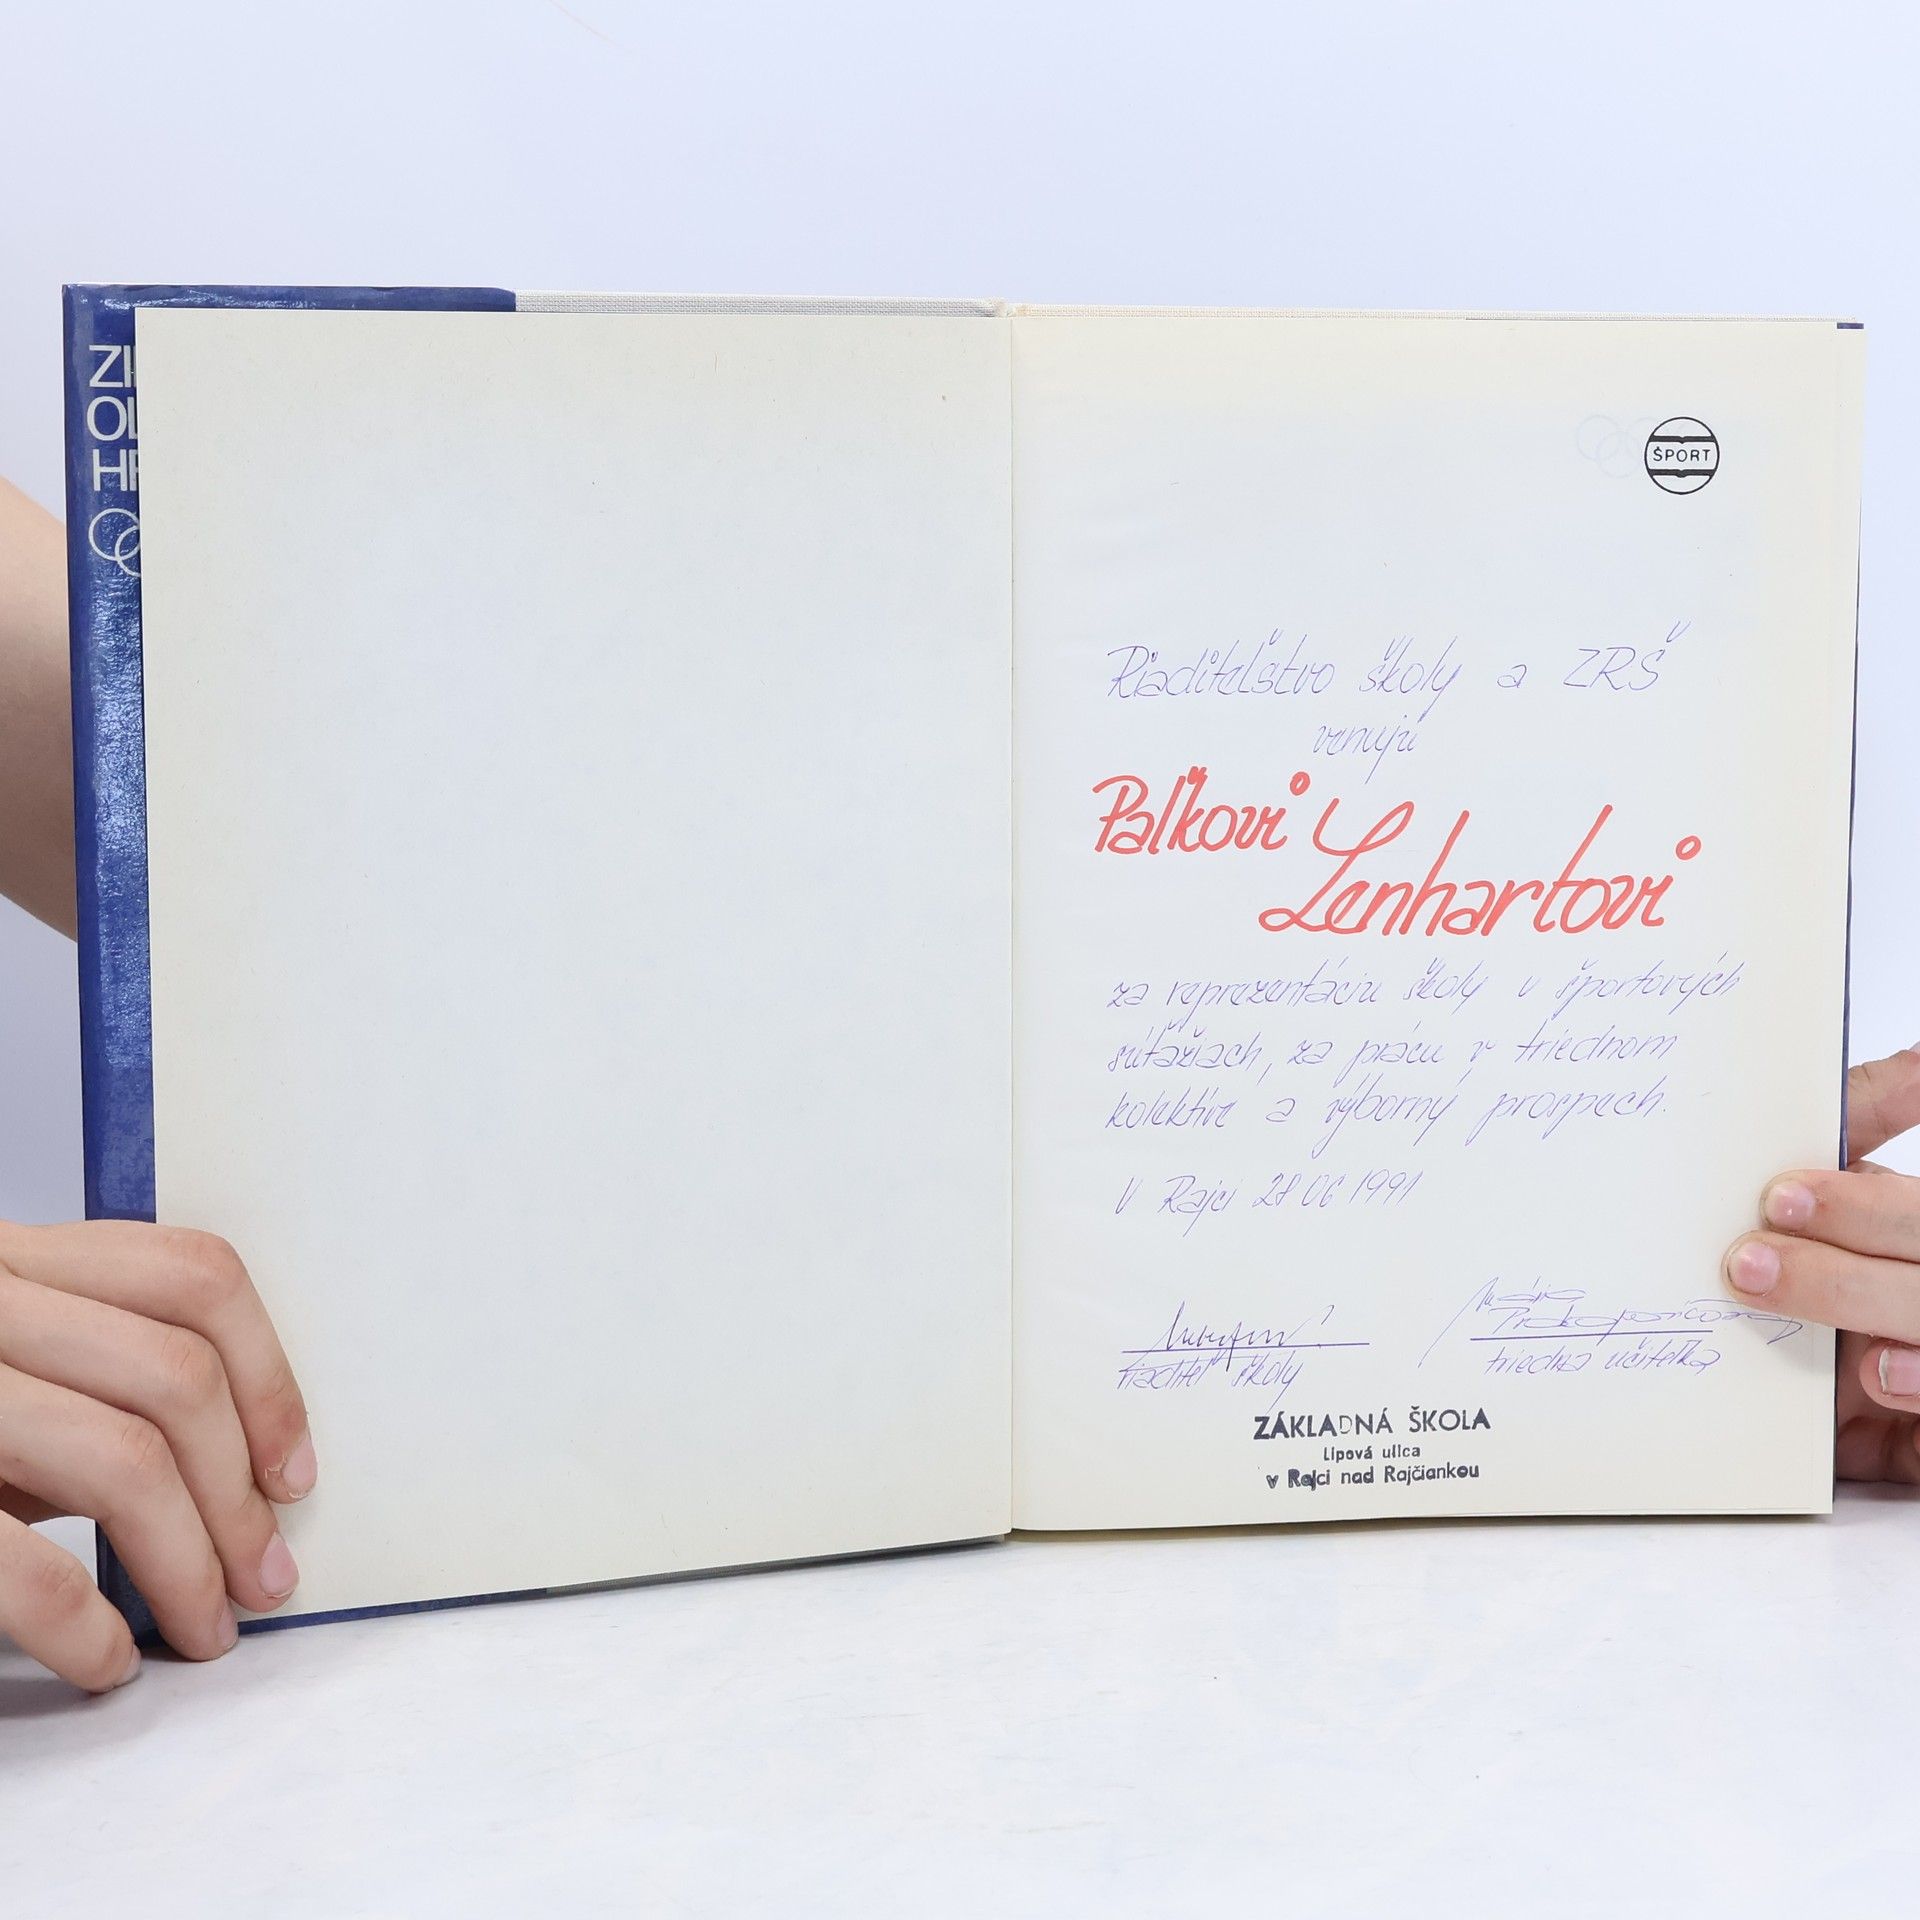 ZI
OL
HR
ŠPORT
Riaditeľstvo školy a ZRŠ
venujú
Paľkovi
Lenhartovi
za reprezentáciu školy v športových
súťažiach, za prácu v triednom
kolektíve a výborný prospech.
V Rajci 28 06 1991
Mária
Prokopovičová
riaditeľ školy
triedna učiteľka
ZÁKLADNÁ ŠKOLA
Lipová ulica
v Rajci nad Rajčiankou